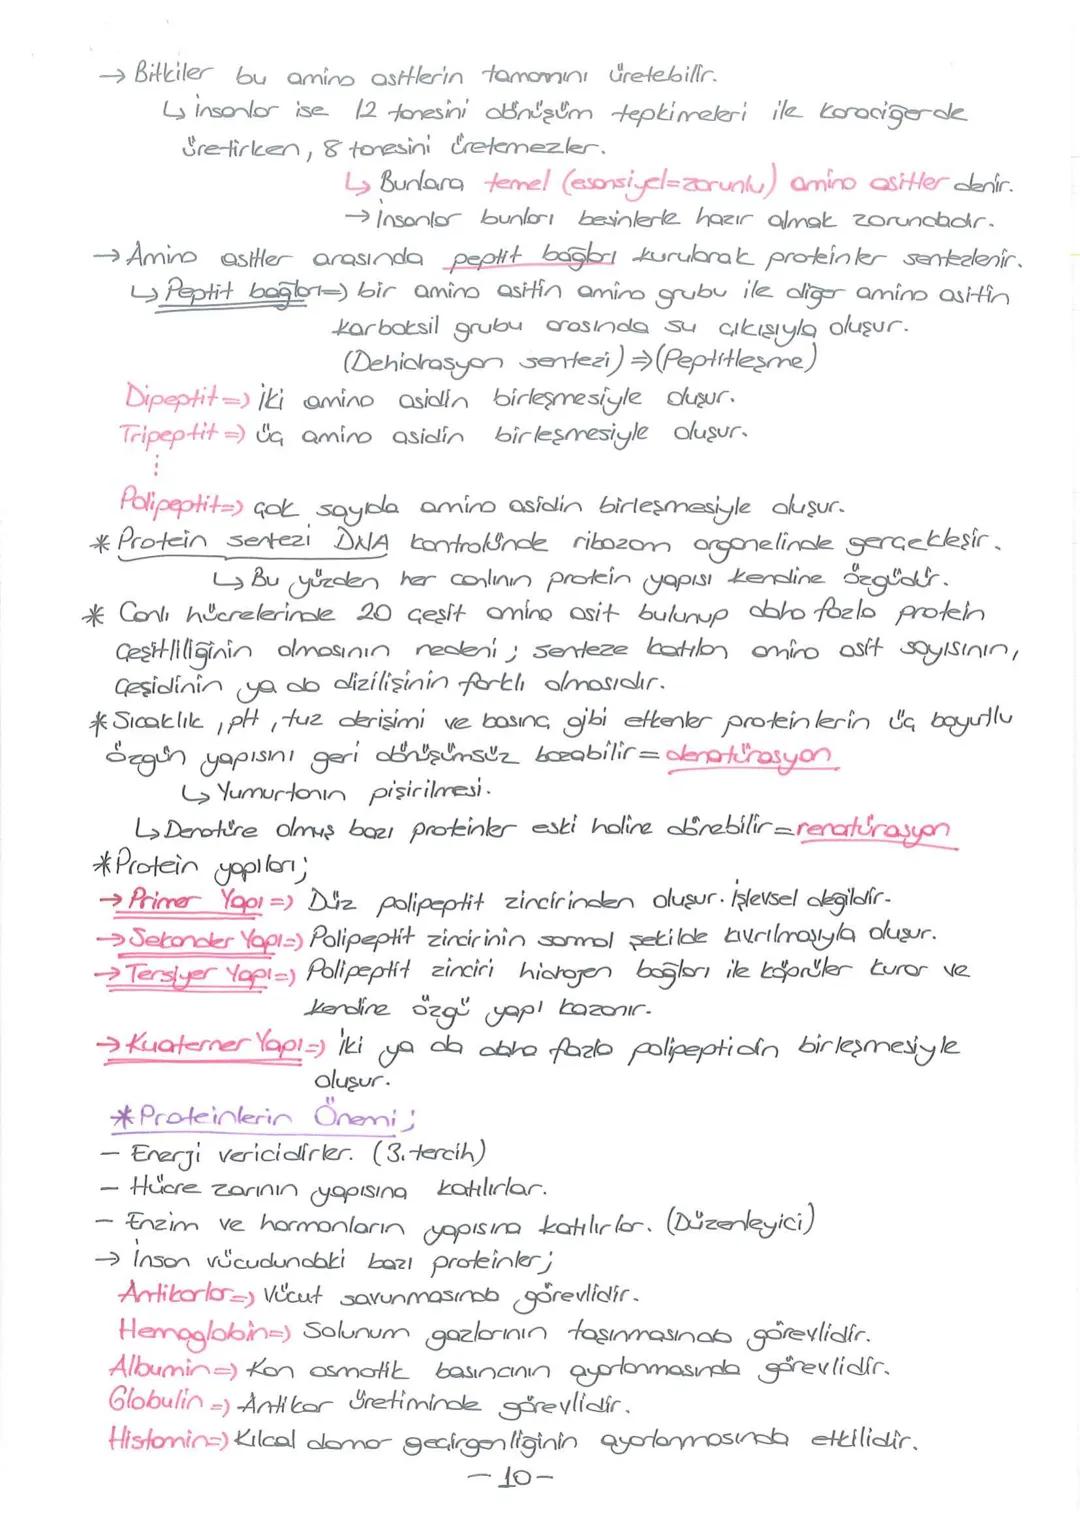 → Bitkiler bu amino asitlerin tamamını üretebilir.
↳ insanlar ise 12 tanesini dönüşüm tepkimeleri ile karaciğerde
üretirken, 8 tanesini üretemezler.
↳ Bunlara temel (esansiyel=zorunlu) amino asitler denir.
→ İnsanlar bunları besinlerle hazır almak zorundadır.
→ Amino asitler arasında peptit bağları kurularak proteinler sentezlenir.
↳ Peptit bağları=) bir amino asitin amino grubu ile diğer amino asitin
karboksil grubu arasında su çıkışıyla oluşur.
(Dehidrasyon sentezi) ⇒ (Peptitleşme)
Dipeptit =) İki amino asidin birleşmesiyle oluşur.
Tripeptit =) üç amino asidin birleşmesiyle oluşur.
⋮
Polipeptit=) çok sayıda amino asidin birleşmesiyle oluşur.
* Protein sentezi DNA kontrolünde ribozom organelinde gerçekleşir.
↳ Bu yüzden her canlının protein yapısı kendine özgüdür.
* Canlı hücrelerinde 20 çeşit amino asit bulunup daha fazla protein
çeşitliliğinin olmasının nedeni ; senteze katılan amino asit sayısının,
çeşidinin ya da dizilişinin farklı olmasıdır.
* Sıcaklık , pH , tuz derişimi ve basınç gibi etkenler proteinlerin üç boyutlu
özgün yapısını geri dönüşümsüz bozabilir = denatürasyon
↳ Yumurtanın pişirilmesi.
↳ Denatüre olmuş bazı proteinler eski haline dönebilir = renatürasyon
* Protein yapıları;
→ Primer Yapı =) Düz polipeptit zincirinden oluşur. İşlevsel değildir.
→ Sekonder Yapı=) Polipeptit zincirinin sarmal şekilde kıvrılmasıyla oluşur.
→ Tersiyer Yapı=) Polipeptit zinciri hidrojen bağları ile köprüler kurar ve
kendine özgü yapı kazanır.
→ Kuaterner Yapı=) İki ya da daha fazla polipeptidin birleşmesiyle
oluşur.
* Proteinlerin Önemi ;
- Enerji vericidirler. (3. tercih)
- Hücre zarının yapısına katılırlar.
- Enzim ve hormonların yapısına katılırlar. (Düzenleyici)
→ İnsan vücudundaki bazı proteinler;
Antikorlar=) Vücut savunmasında görevlidir.
Hemoglobin=) Solunum gazlarının taşınmasında görevlidir.
Albumin =) Kan osmotik basıncının ayarlanmasında görevlidir.
Globulin =) Antikor üretiminde görevlidir.
Histamin=) Kılcal damar geçirgenliğinin ayarlanmasında etkilidir.
- 10 -